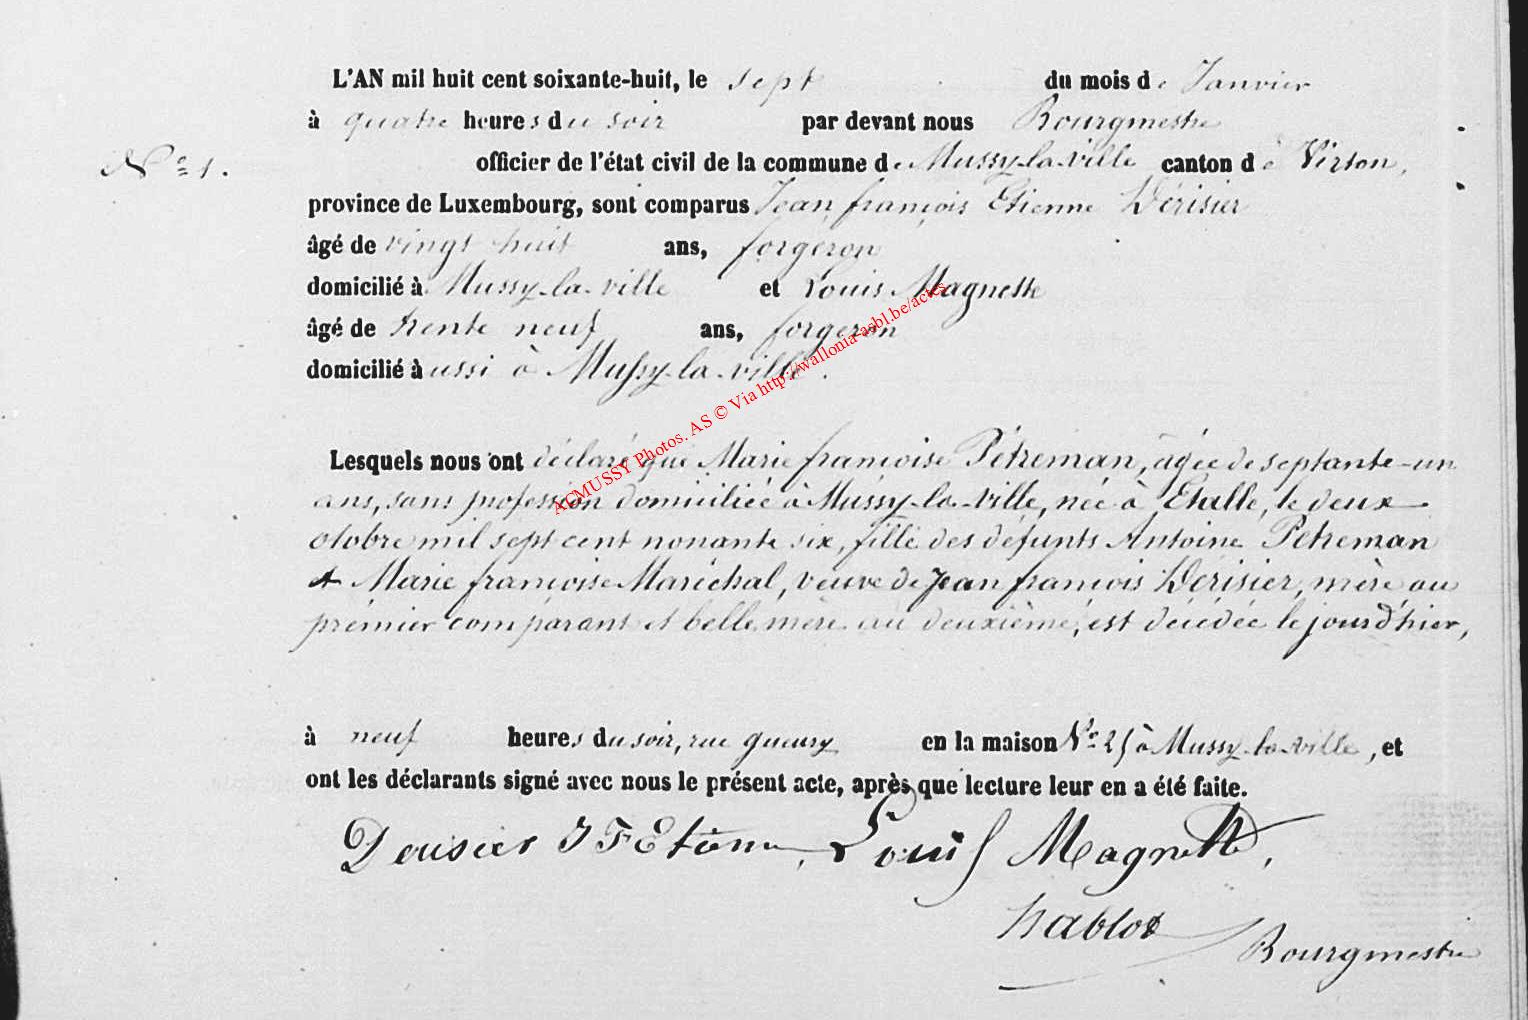 L'AN mil huit cent soixante-huit, le sept du mois de Janvier
à quatre heures du soir par devant nous Bourgmestre
N° 1. officier de l'état civil de la commune de Mussy-la-ville canton de Virton,
province de Luxembourg, sont comparus Jean françois Etienne Dérisier
âgé de vingt huit ans, forgeron
domicilié à Mussy-la-ville et Louis Magnette
âgé de trente neuf ans, forgeron
domicilié aussi à Mussy-la-ville.
ACMUSSY Photos. AS © Via http://wallonia-asbl.be/actes
Lesquels nous ont déclaré que Marie françoise Pétreman, âgée de septante-un
ans, sans profession domiciliée à Mussy-la-ville, née à Etalle, le deux
octobre mil sept cent nonante six, fille des défunts Antoine Pétreman
et Marie françoise Maréchal, veuve de Jean françois Dérisier, mère au
premier comparant et belle mère au deuxième, est décédée le jour d'hier,
à neuf heures du soir, rue gueusy en la maison N° 25 à Mussy-la-ville, et
ont les déclarants signé avec nous le présent acte, après que lecture leur en a été faite.
Derisier J F Etienne, Louis Magnette,
Bourgmestre